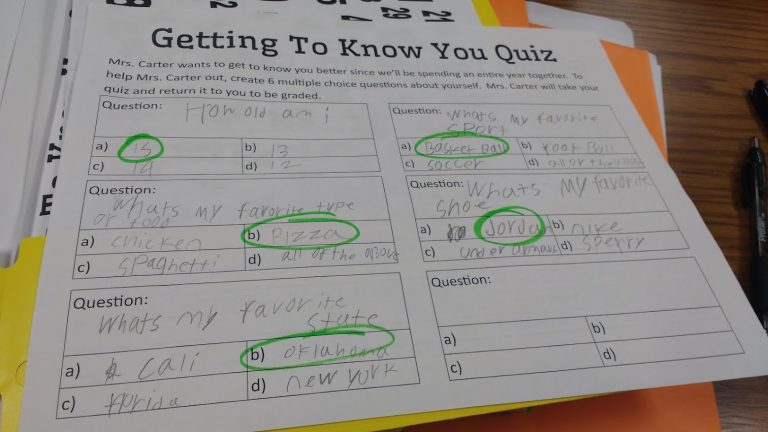 Getting To Know You Quiz
Mrs. Carter wants to get to know you better since we'll be spending an entire year together. To
help Mrs. Carter out, create 6 multiple choice questions about yourself. Mrs. Carter will take your
quiz and return it to you to be graded.
Question: How old am i
a) 15 b) 13
c) 14 d) 12
Question: Whats my favorite
sport
a) Basket Ball b) Foot Ball
c) soccer d) all of the
Question:
Whats my favorite type
of food
a) chicken b) Pizza
c) spaghetti d) all of the above
Question: Whats my favorite
shoe
a) Jordan b) nike
c) under armour d) sperry
Question:
Whats my favorite
state
a) cali b) oklahoma
c) florida d) new york
Question:
a) b)
c) d)